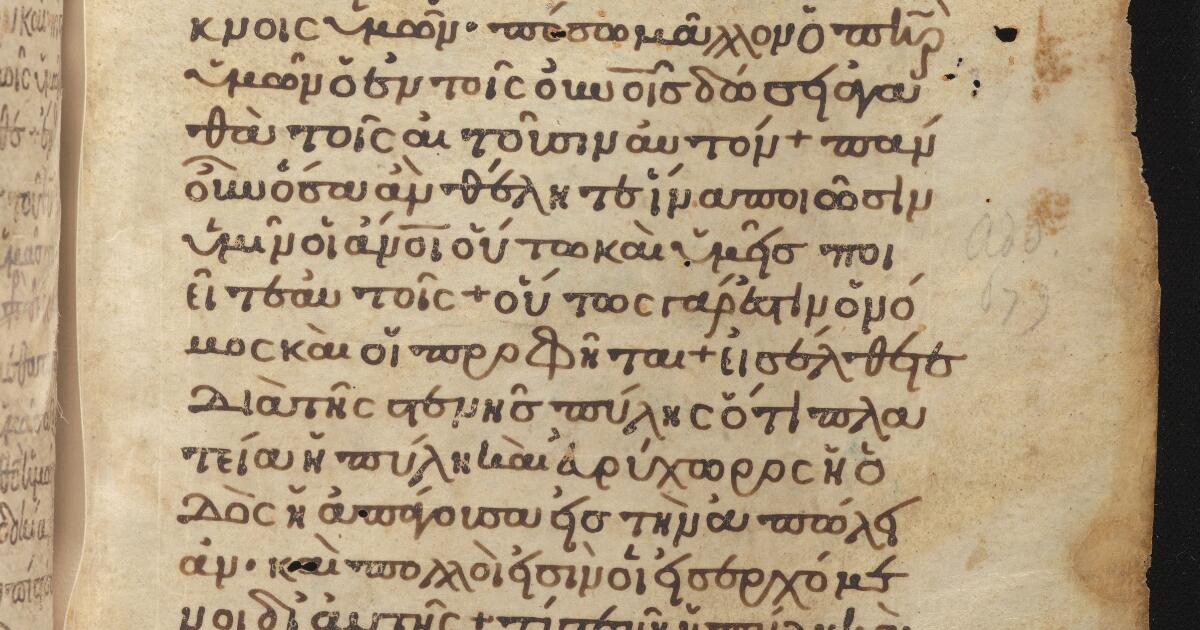 κνοις ὑμῶν· πόσω μᾶλλον ὁ π̅η̅ρ̅
ὑμῶν ὁ ἐν τοῖς ὀυ̅ν̅οῖς δώσει ἀγα
θὰ τοῖς αἰτοῦσιν αὐτόν + πάν
τα οὖν ὅσα ἂν θέλητε ἵνα ποιῶσιν
ὑμῖν οἱ ἄν̅ο̅ι̅ οὕτω καὶ ὑμεῖς ποι
εῖτε αὐτοῖς + οὗτος γάρ ἐστιν ὁ νό
μος καὶ οἱ προφῆται + εἰσέλθετε
Διὰ τῆς στενῆς πύλης ὅτι πλα
τεῖα ἡ πύλη καὶ εὐρύχωρος ἡ ὁ
Δὸς ἡ ἀπάγουσα εἰς τὴν ἀπώλει
αν· καὶ πολλοὶ εἰσὶν οἱ εἰσερχόμε
νοι δι' αὐτῆς +